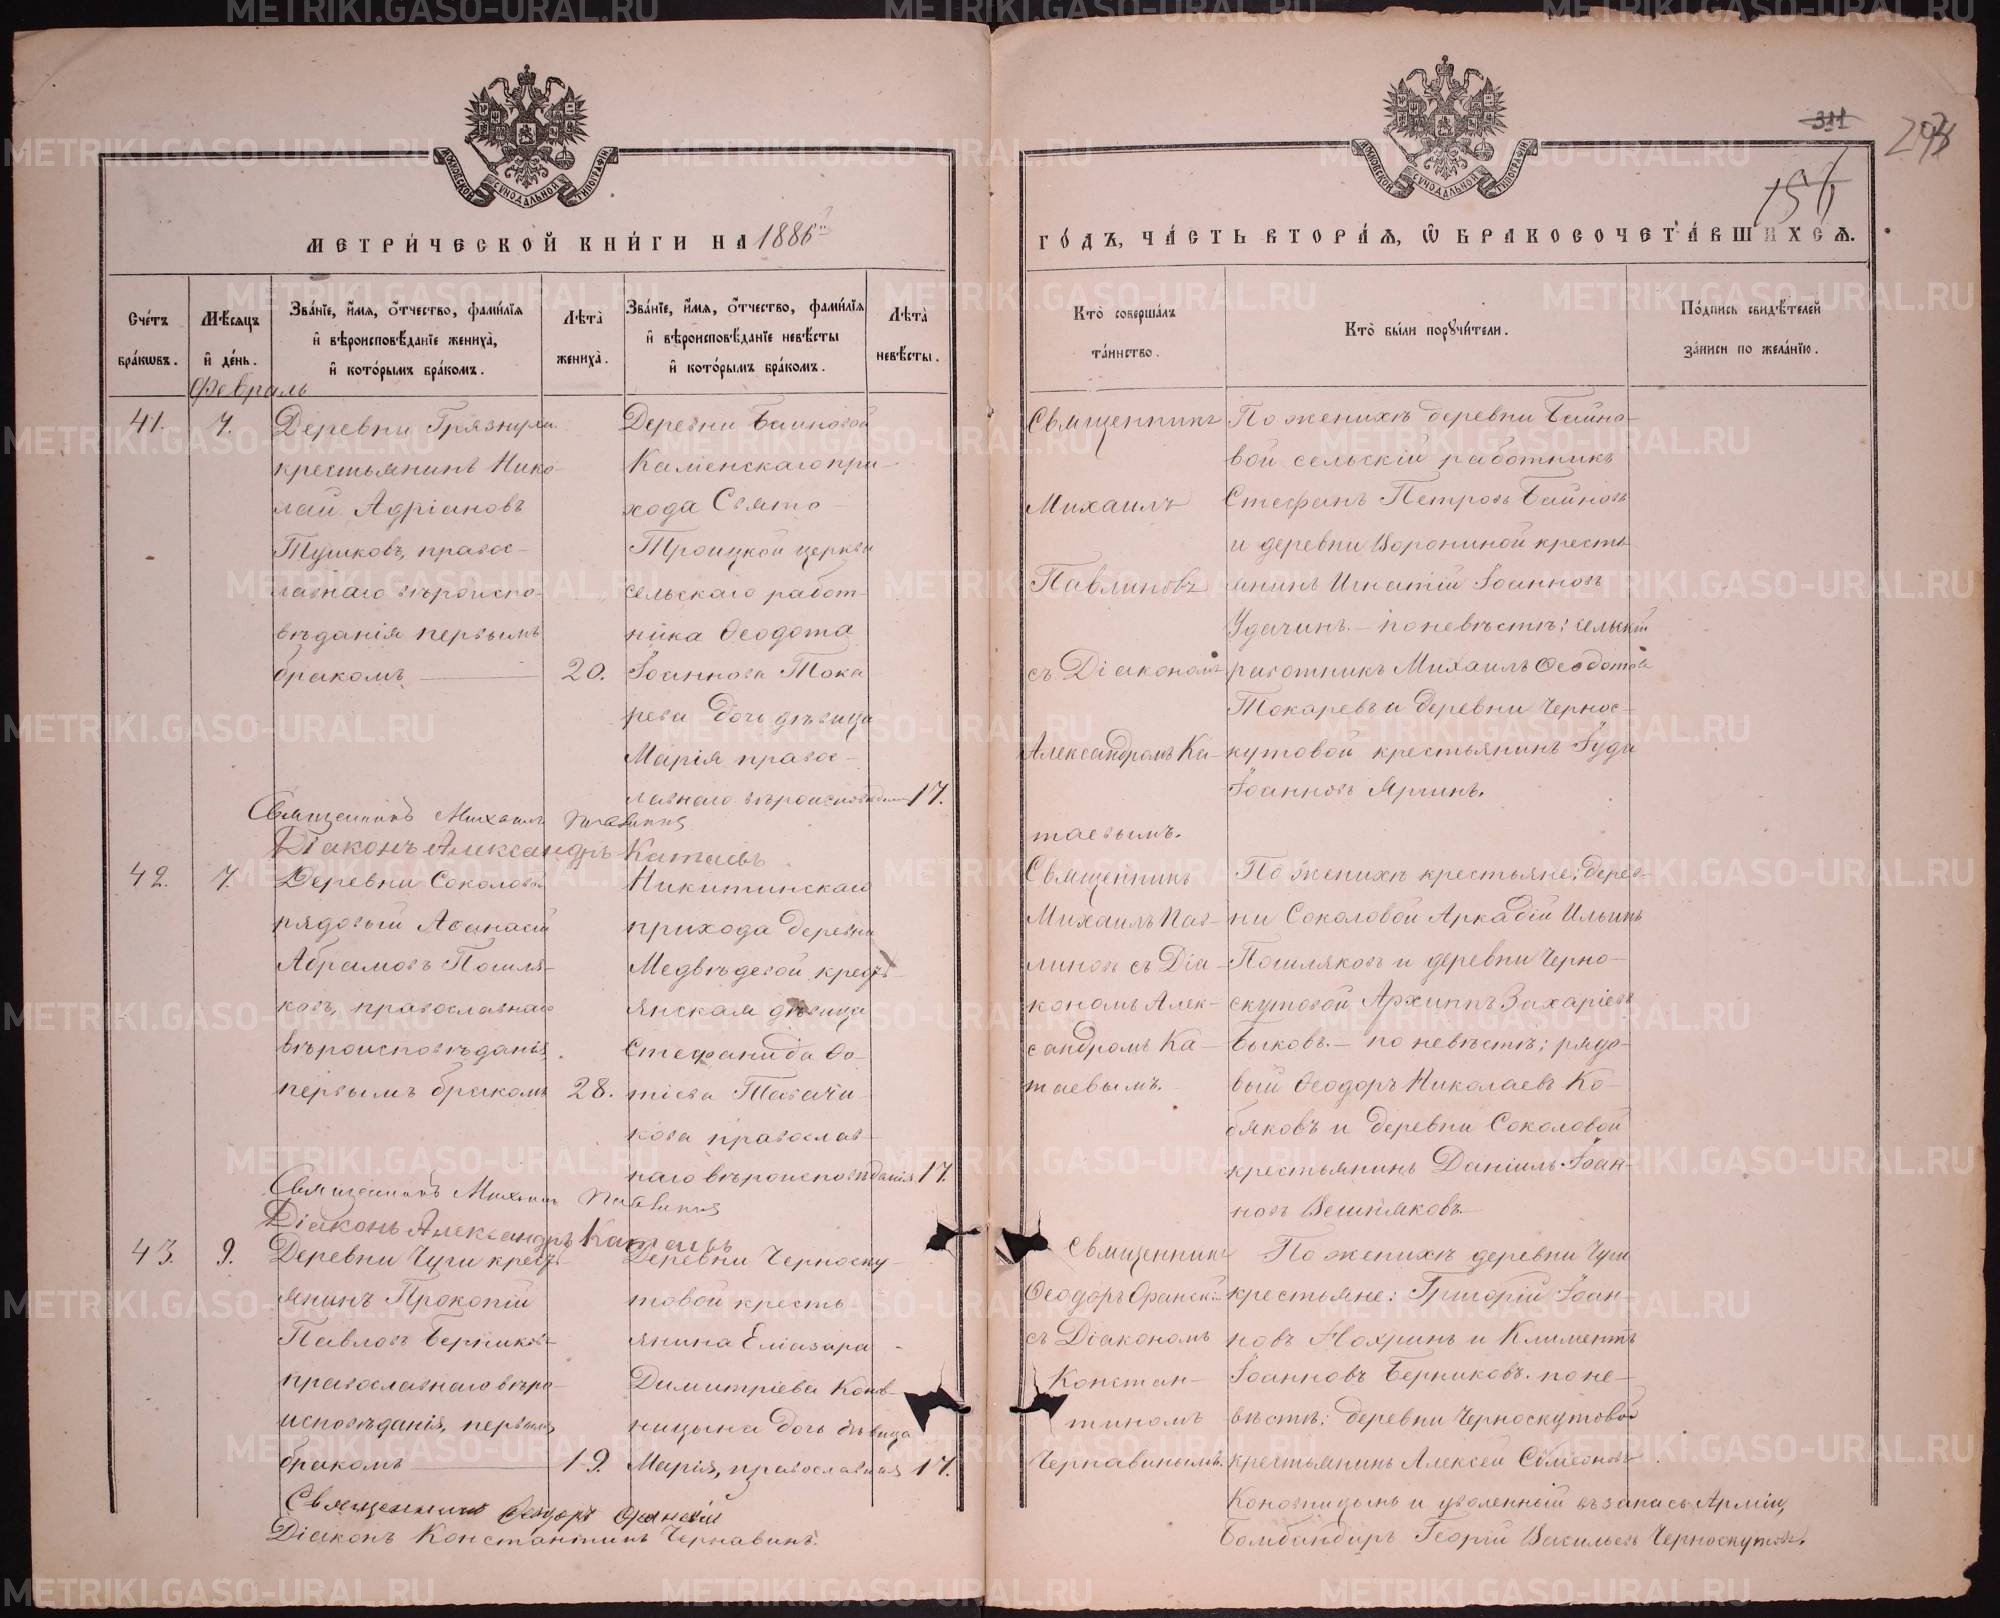 МЕТРИ́ЧЕСКОЙ КНИ́ГИ НА 1886й
Сче́тъ бра́кѡвъ.
Мѣ́сяцъ и҆ де́нь.
Зва́нїе, и҆́мя, ѻ҆́тчество, фами́лїя и҆ вѣроисповѣ́данїе жениха̀, и҆ кото́рымъ бра́комъ.
Лѣта̀ жениха̀.
Зва́нїе, и҆́мя, ѻ҆́тчество, фами́лїя и҆ вѣроисповѣ́данїе невѣ́сты и҆ кото́рымъ бра́комъ.
Лѣта̀ невѣ́сты.
Февраль
41.
7.
Деревни Грязнухи
крестьянинъ Нико-
лай Адріановъ
Тушковъ, правос-
лавнаго вѣроиспо-
вѣданія первымъ
бракомъ
20.
Деревни Байновой
Каменскаго при-
хода Свято-
Троицкой церкви
сельскаго работ-
ника Ѳеодота
Іоаннова Тока
рева дочь дѣвица
Марія правос-
лавнаго вѣроисповѣданія
17.
Священникъ Михаилъ Павлиновъ
Діаконъ Александръ Катаевъ
42.
7.
Деревни Соколовой
рядовый Аѳанасій
Абрамовъ Пошля-
ковъ, православнаго
вѣроисповѣданія
первымъ бракомъ
28.
Никитинскаго
прихода деревни
Медвѣдевой кресть-
янская дѣвица
Стефанида Фо-
тіева Табачи-
кова православ-
наго вѣроисповѣданія
17.
Священникъ Михаилъ Павлиновъ
Діаконъ Александръ Катаевъ
43.
9.
Деревни Чуги кресть-
янинъ Прокопій
Павловъ Берниковъ
православнаго вѣро-
исповѣданія, первымъ
бракомъ
19.
Деревни Черноску-
товой кресть
янина Еліазара
Димитріева Конов-
ницына дочь дѣвица
Марія, православная
17.
Священникъ Ѳеодоръ Оранскій
Діаконъ Константинъ Чернавинъ.
311
156
ГО́ДЪ, ЧА́СТЬ ВТОРА́Я, Ѽ БРАКОСОЧЕТА́ВШИХСЯ.
Кто̀ соверша́лъ та́инство.
Кто̀ бы́ли порꙋчи́тели.
По́дпись свидѣ́телей за́писи по жела́нїю.
Священникъ
Михаилъ
Павлиновъ
съ Діакономъ
Александромъ Ка-
таевымъ.
По женихѣ деревни Байно-
вой сельскій работникъ
Стефанъ Петровъ Байновъ
и деревни Ворониной кресть-
янинъ Игнатій Іоанновъ
Удачинъ – по невѣстѣ: сельскій
работникъ Михаилъ Ѳеодотовъ
Токаревъ и деревни Чернос-
кутовой крестьянинъ Іуда
Іоанновъ Яргинъ.
Священникъ
Михаилъ Пав-
линовъ съ Діа-
кономъ Алек-
сандромъ Ка-
таевымъ.
По женихѣ крестьяне: дерев-
ни Соколовой Аркадій Ильинъ
Пошляковъ и деревни Черно-
скутовой Архиппъ Захаріевъ
Быковъ. – по невѣстѣ; рядо-
вый Ѳеодоръ Николаевъ Ко-
бяковъ и деревни Соколовой
крестьянинъ Даніилъ Іоан-
новъ Вешняковъ
Священникъ
Ѳеодоръ Оранскій
съ Діакономъ
Констан-
тиномъ
Чернавинымъ.
По женихѣ деревни Чуги
крестьяне: Григорій Іоан-
новъ Нохринъ и Климентъ
Іоанновъ Берниковъ. по не-
вѣстѣ: деревни Черноскутовой
крестьянинъ Алексей Сѵмеоновъ
Коновницынъ и уволенный въ запасъ Арміи,
Бомбандиръ Георгій Васильевъ Черноскутовъ.